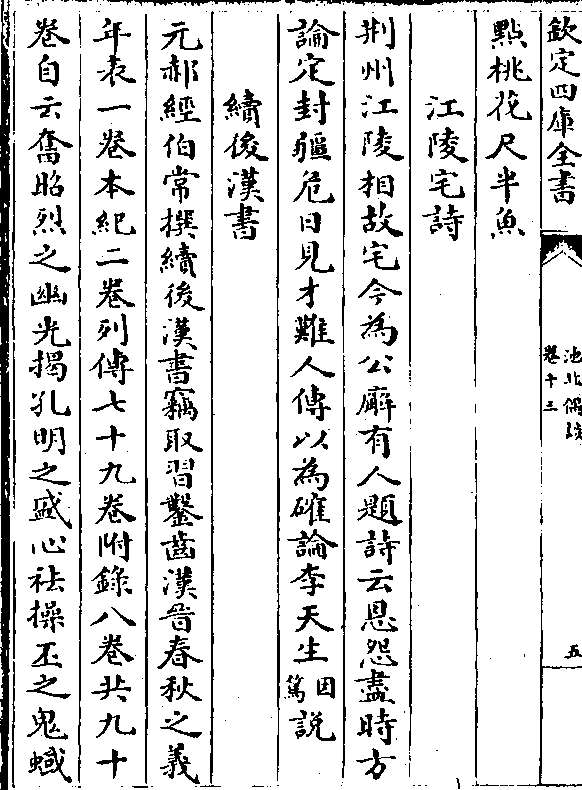 欽定四庫全書
池北偶談
卷十三
五
點桃花尺半魚
江陵宅詩
荆州江陵相故宅今為公廨有人題詩云恩怨盡時方
論定封疆危日見才難人傳以為確論李天生因篤説
續後漢書
元郝經伯常撰續後漢書竊取習鑿齒漢晉春秋之義
年表一卷本紀二卷列傳七十九卷附錄八卷共九十
卷自云奮昭烈之幽光揭孔明之盛心祛操丕之鬼蜮